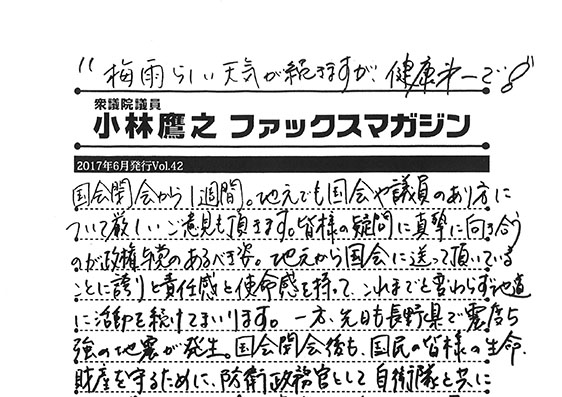 "梅雨らしい天気が続きますが、健康第一で!!
衆議院議員
小林鷹之 ファックスマガジン
2017年6月発行Vol.42
国会閉会から1週間。地元でも国会や議員のあり方に
ついて厳しいご意見も頂きます。皆様の疑問に真摯に向き合う
のが政権与党のあるべき姿。地元から国会に送って頂いている
ことに誇りと責任感と使命感を持って、これまでと変わらず地道
に活動を続けてまいります。一方、先日も長野県で震度5
強の地震が発生。国会閉会後も、国民の皆様の生命、
財産を守るために、防衛政務官として自衛隊と共に